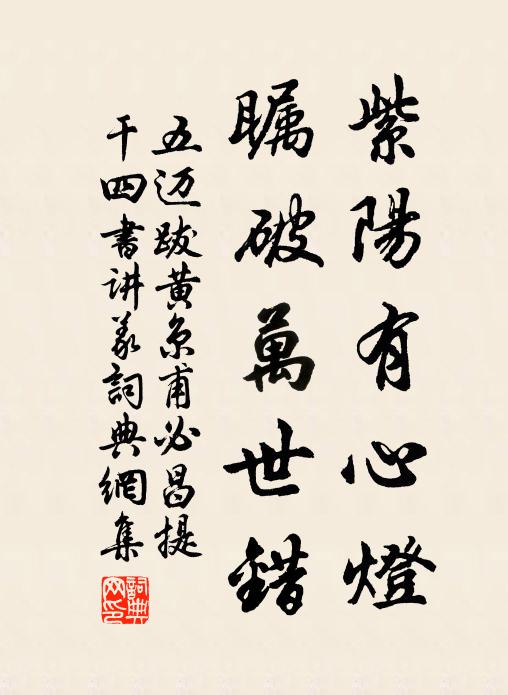 紫陽有心燈
矚破萬世錯
五迈跋黄京甫必昌提
干四書讲義詞典網集
詞典网印